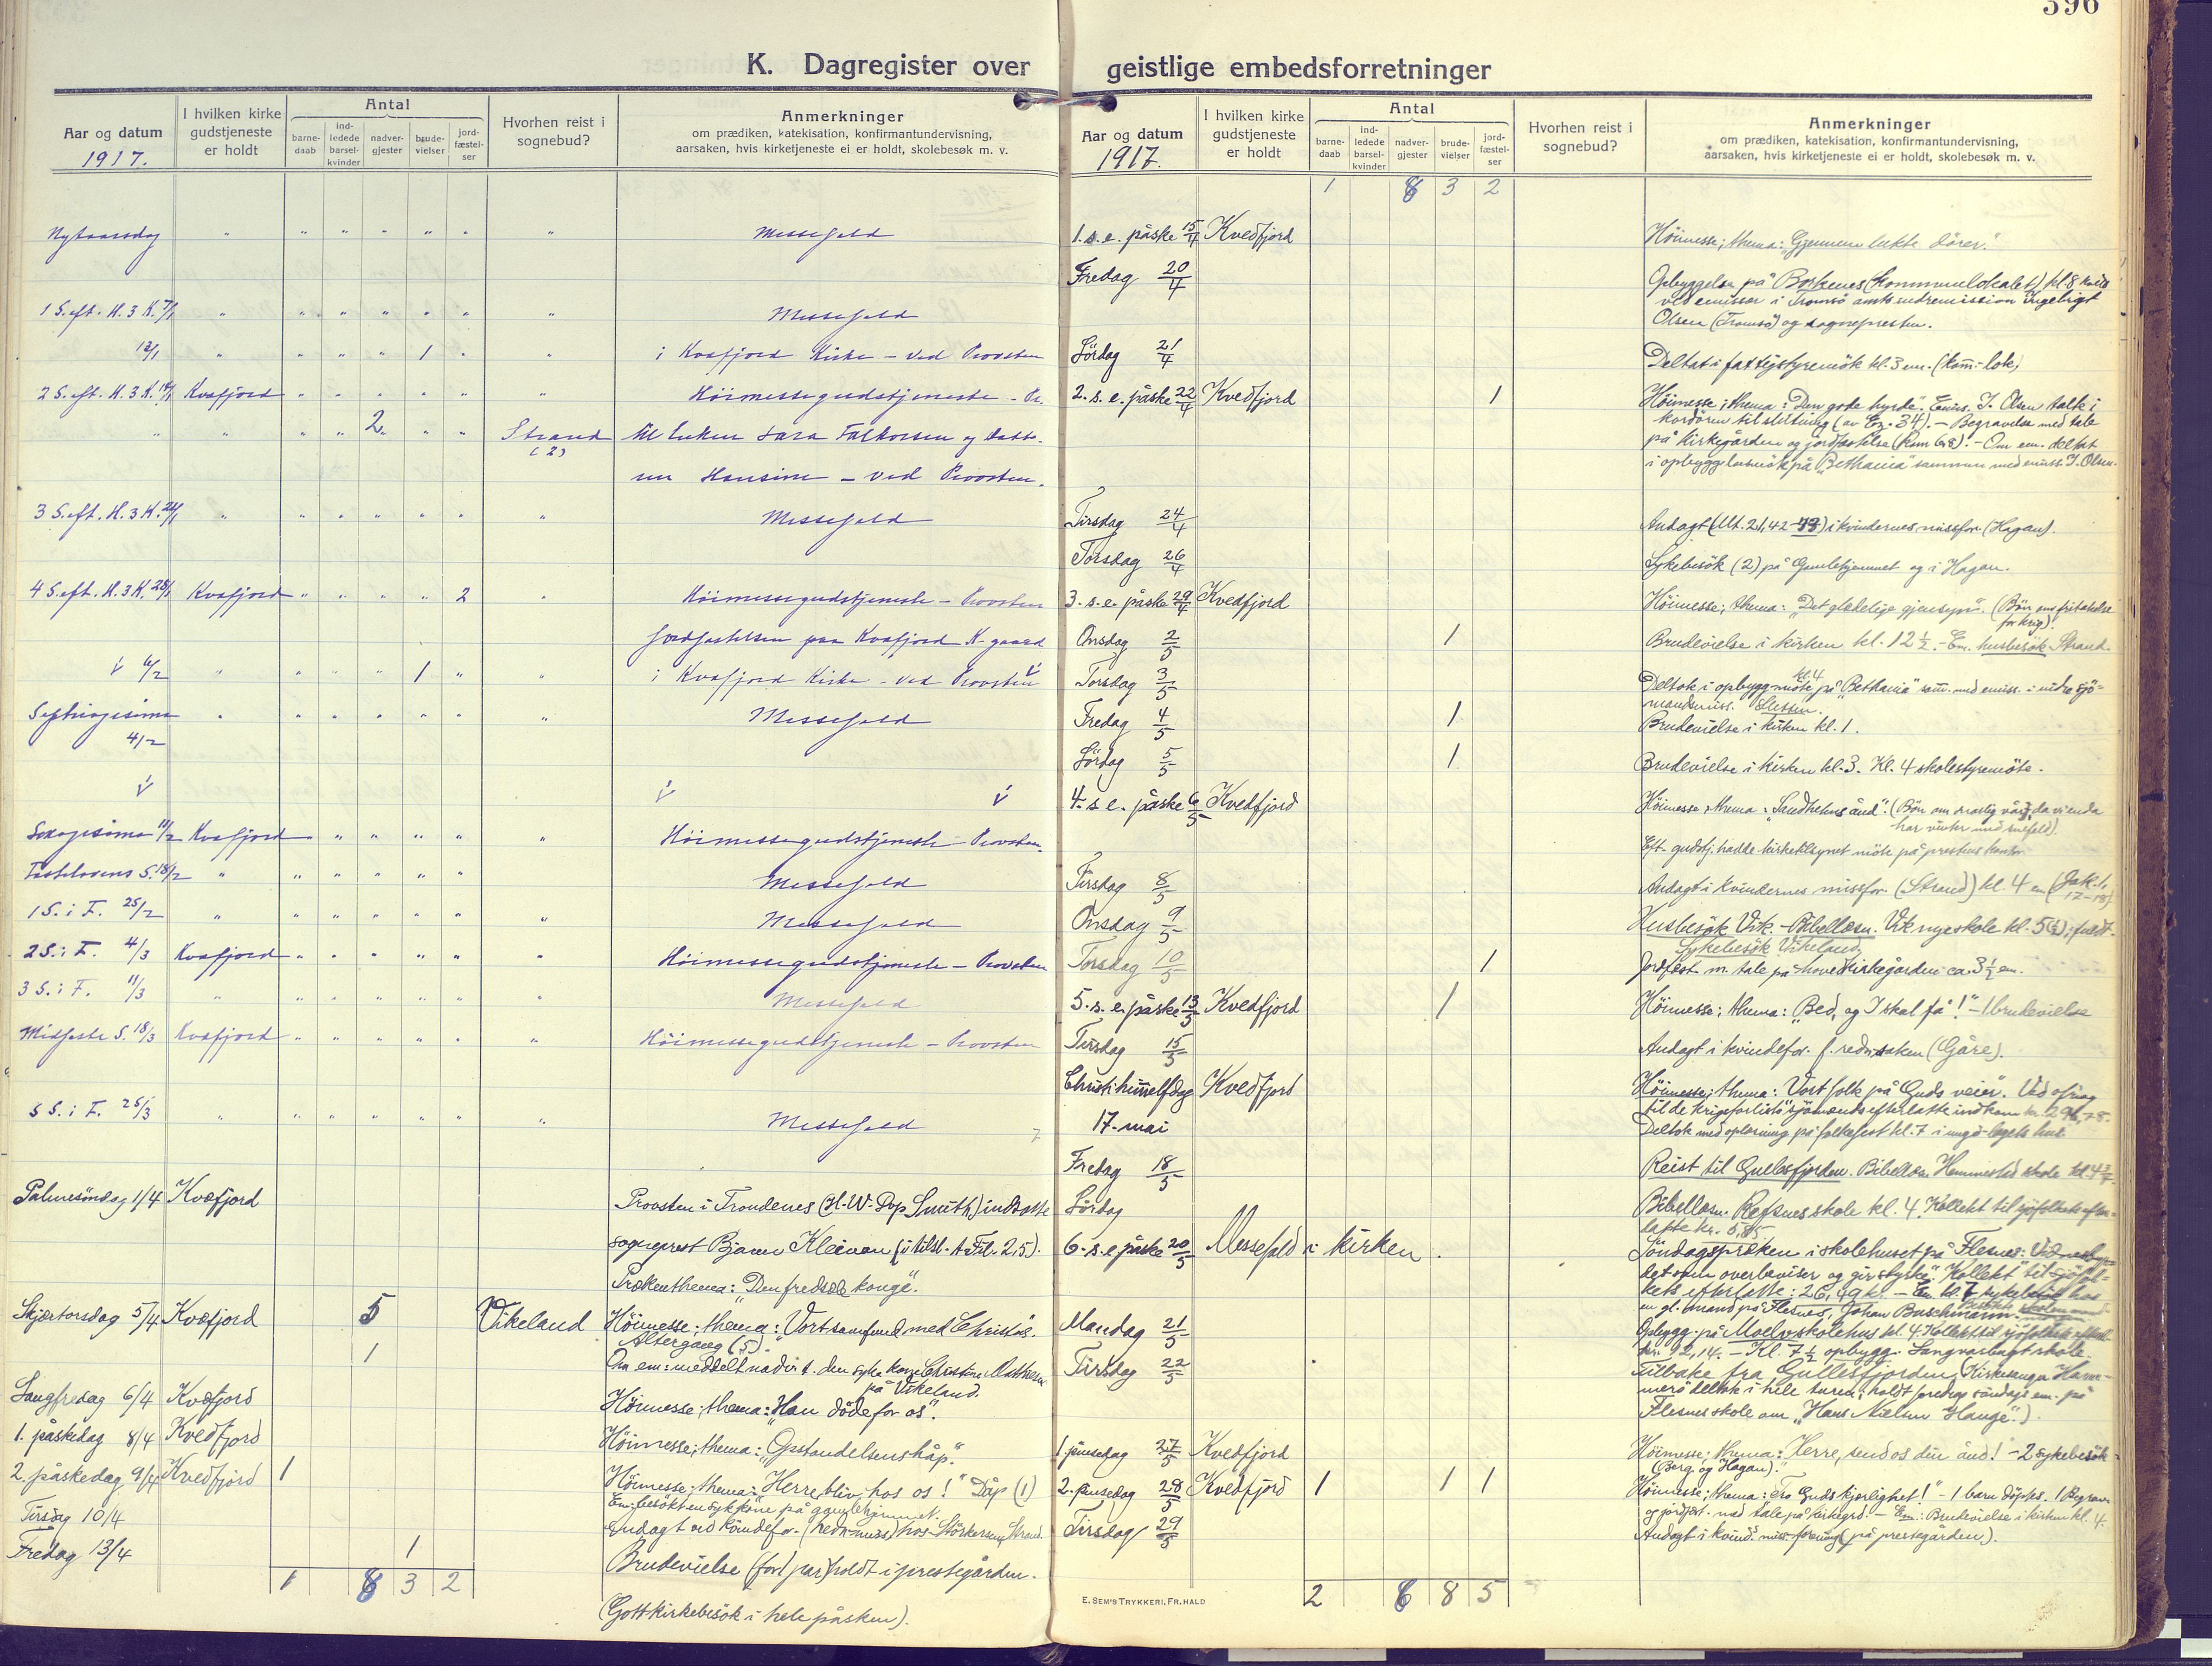 396
K. Dagregister over geistlige embedsforretninger
Aar og datum
1917.
I hvilken kirke gudstjeneste er holdt
Antal
barne-daab
ind-ledede barsel-kvinder
nadver-gjester
brude-vielser
jord-fæstel-ser
Hvorhen reist i sognebud?
Anmerkninger
om prædiken, katekisation, konfirmantundervisning,
aarsaken, hvis kirketjeneste ei er holdt, skolebesøk m. v.
Nytaarsdag " " " " " " " Messefald
1 S. eft. H. 3 K. 7/1 " " " " " " " Messefald
12/1 " " " " 1 " " i Kvæfjord Kirke – ved Provsten
2 S. eft. H. 3 K. 14/1 Kvæfjord " " " " " " Høimessegudstjeneste – Pr.
" " " " 2 " " Strand til Enken Sara Falkorsen og datte-
(2)
ren Hansine – ved Provsten.
3 S. eft. H. 3 K. 21/1 " " " " " " " Messefald
4 S. eft. H. 3 K. 28/1 Kvæfjord " " " " 2 " Høimessegudstjeneste – Provsten
Jordfæstelsen paa Kvæfjord K-gaard
6/2 " " " " 1 " " i Kvæfjord Kirke – ved Provsten
Septuagesima " " " " " " " Messefald
4/2
Sexagesima 11/2 Kvæfjord " " " " " Høimessegudstjeneste – Provsten.
Fastelavens S. 18/2 " " " " " " Messefald
1 S. i F. 25/2 " " " " " " " Messefald
2 S. i F. 4/3 Kvæfjord " " " " " " Høimessegudstjeneste – Provsten
3 S. i F. 11/3 " " " " " " " Messefald
Midfaste S. 18/3 Kvæfjord " " " " " " Høimessegudstjeneste – Provsten
5 S. i F. 25/3 " " " " " " " Messefald
Palmesöndag 1/4 Kvæfjord Provsten i Trondenes (H. W. Pop Smith) indsatte
sogneprest Bjarne Kleivan
Prækenthema: "Den fredsæle konge".
Skjærtorsdag 5/4 Kvæfjord 5 Vikeland Höimesse; thema: "Vort samfund med Christus".
Altergang (5).
1 Om em: meddelt nadv. t. den syke kone Christine Mathisen
på Vikeland.
Langfredag 6/4 Kvæfjord Höimesse; thema: "Han döde for os".
1. påskedag 8/4 Kvedfjord Höimesse; thema: "Opstandelsens håp."
2. påskedag 9/4 Kvedfjord 1 Höimesse; thema: "Herre bliv hos os!" Dåp (1)
Em: besökt en syk kone på gamlehjemmet.
Tirsdag 10/4 Andagt ved kvindefor. hos Strand.
Fredag 13/4 1 Brudevielse (for 1 par) holdt i prestegården.
1 8 3 2
(Godt kirkebesök i hele påsken).
Aar og datum
1917.
I hvilken kirke gudstjeneste er holdt
Antal
barne-daab
ind-ledede barsel-kvinder
nadver-gjester
brude-vielser
jord-fæstel-ser
Hvorhen reist i sognebud?
Anmerkninger
om prædiken, katekisation, konfirmantundervisning,
aarsaken, hvis kirketjeneste ei er holdt, skolebesøk m. v.
1 8 3 2
1. s. e. påske 15/4 Kvedfjord Höimesse; thema: "Gjennem lukte dörer."
Fredag 20/4 Opbyggelse på Borkenes (Kommunelokalet) kl. 8
ved emissær i Tromsö amts indremission Ingebrigt
Olsen (Tromsö) og sognepresten.
Lördag 21/4 Deltat i fattigstyremök kl. 3 em. (kom.-lok)
2. s. e. påske 22/4 Kvedfjord 1 Höimesse; thema: "Den gode hyrde". Emis. I. Olsen talte i
kordören til slutning (av Ez. 34). – Begravelse med tale
på kirkegården og jordfæstelse (Rom 6,8). – Om em. deltat
i opbyggelsesmök på "Bethania" sammen med emiss. I. Olsen.
Tirsdag 24/4 Andagt (Mt. 21,42-) i kvindernes missfor. (Hagan).
Torsdag 26/4 Sykebesök (2) på Gamlehjemmet og i Hagan.
3. s. e. påske 29/4 Kvedfjord Höimesse; thema: "Det glædelige gjensyn". (Bön om fritakelse
for krig)!
Onsdag 2/5 1 Brudevielse i kirken kl. 12 1/2. – Em. husbesök Strand.
Torsdag 3/5 Deltok i opbygg.möte kl. 4 på "Bethania" sam. med emiss. i indre sjö-
mandsmiss.
Fredag 4/5 1 Brudevielse i kirken kl. 1.
Lördag 5/5 1 Brudevielse i kirken kl. 3. Kl. 4 skolestyremöte.
4. s. e. påske 6/5 Kvedfjord Höimesse thema: "Sandhetens ånd". (Bön om snarlig vår, da vi enda
har vinter med snefald).
Eft. gudstj. hadde kirketilsynet möte på prestens kontor.
Tirsdag 8/5 Andagt i kvindernes missfor. (Strand) kl. 4 em (Jak. 1,
17-18)
Onsdag 9/5 Husbesök Vik. – Bibellæsn. Vik nye skole kl. 5
Sykebesök Vikeland.
Torsdag 10/5 1 Jordfæst. m. tale på hovedkirkegården ca. 3 1/2 em.
5. s. e. påske 13/5 Kvedfjord 1 Höimesse; thema: "Bed, og I skal få!" – 1 brudevielse
Tirsdag 15/5 Andagt i kvindefor. f. redn.saken (Gåre).
Christi himmelf.dag Kvedfjord Höimesse; thema: "Vort folk på Guds veier". Ved ofring
til de krigsforliste sjömænds efterlatte indkom kr.
17. mai Deltok med oplæsning på folkefest kl. 7 i ungd.-lagets hus.
Fredag 18/5 Reist til Gullesfjorden. Bibellæsn. Hemmestad skole kl. 4
Lördag Bibellæsn. Refsnes skole kl. 4. Kollekt til sjöfolkets efter-
latte kr. 5,85
6. s. e. påske 20/5 Messefald i kirken. Söndagspræken i skolehuset på Flesnes:
det som overbeviser og gir styrke. Kollekt til sjöfol-
kets efterlatte: 26,49 kr. – Em. kl. 7 sykebesök hos
en gl. mand på Flesnes, Johan Buschmann.
Mandag 21/5 Opbygg. på Moelv skolehus kl. 4. Kollekt til sjöfolkets efterl.
kr. 12,14. – Kl. 7 1/2 opbygg. Langvasbugt skole.
Tirsdag 22/5 Tilbake fra Gullesfjorden. (Kirkesanger Ham-
merö deltok i hele turen, holdt foredrag söndags em. på
Flesnes skole om "Hans Nielsen Hauge".)
1. pinsedag 27/5 Kvedfjord Höimesse; thema: "Herre, send os din ånd!" – 2 sykebesök
(Berg og Hagan).
2. pinsedag 28/5 Kvedfjord 1 1 1 Höimesse; thema: "Tro Guds kjærlighet!" – 1 barn döptes. 1 Begrav.
og jordfæst. med tale på kirkegrd. – Em.: Brudevielse i kirken kl. 4.
Tirsdag 29/5 Andagt i kvind. miss-forening (på prestegården).
2 6 8 5
E. SEM'S TRYKKERI, FR.HALD